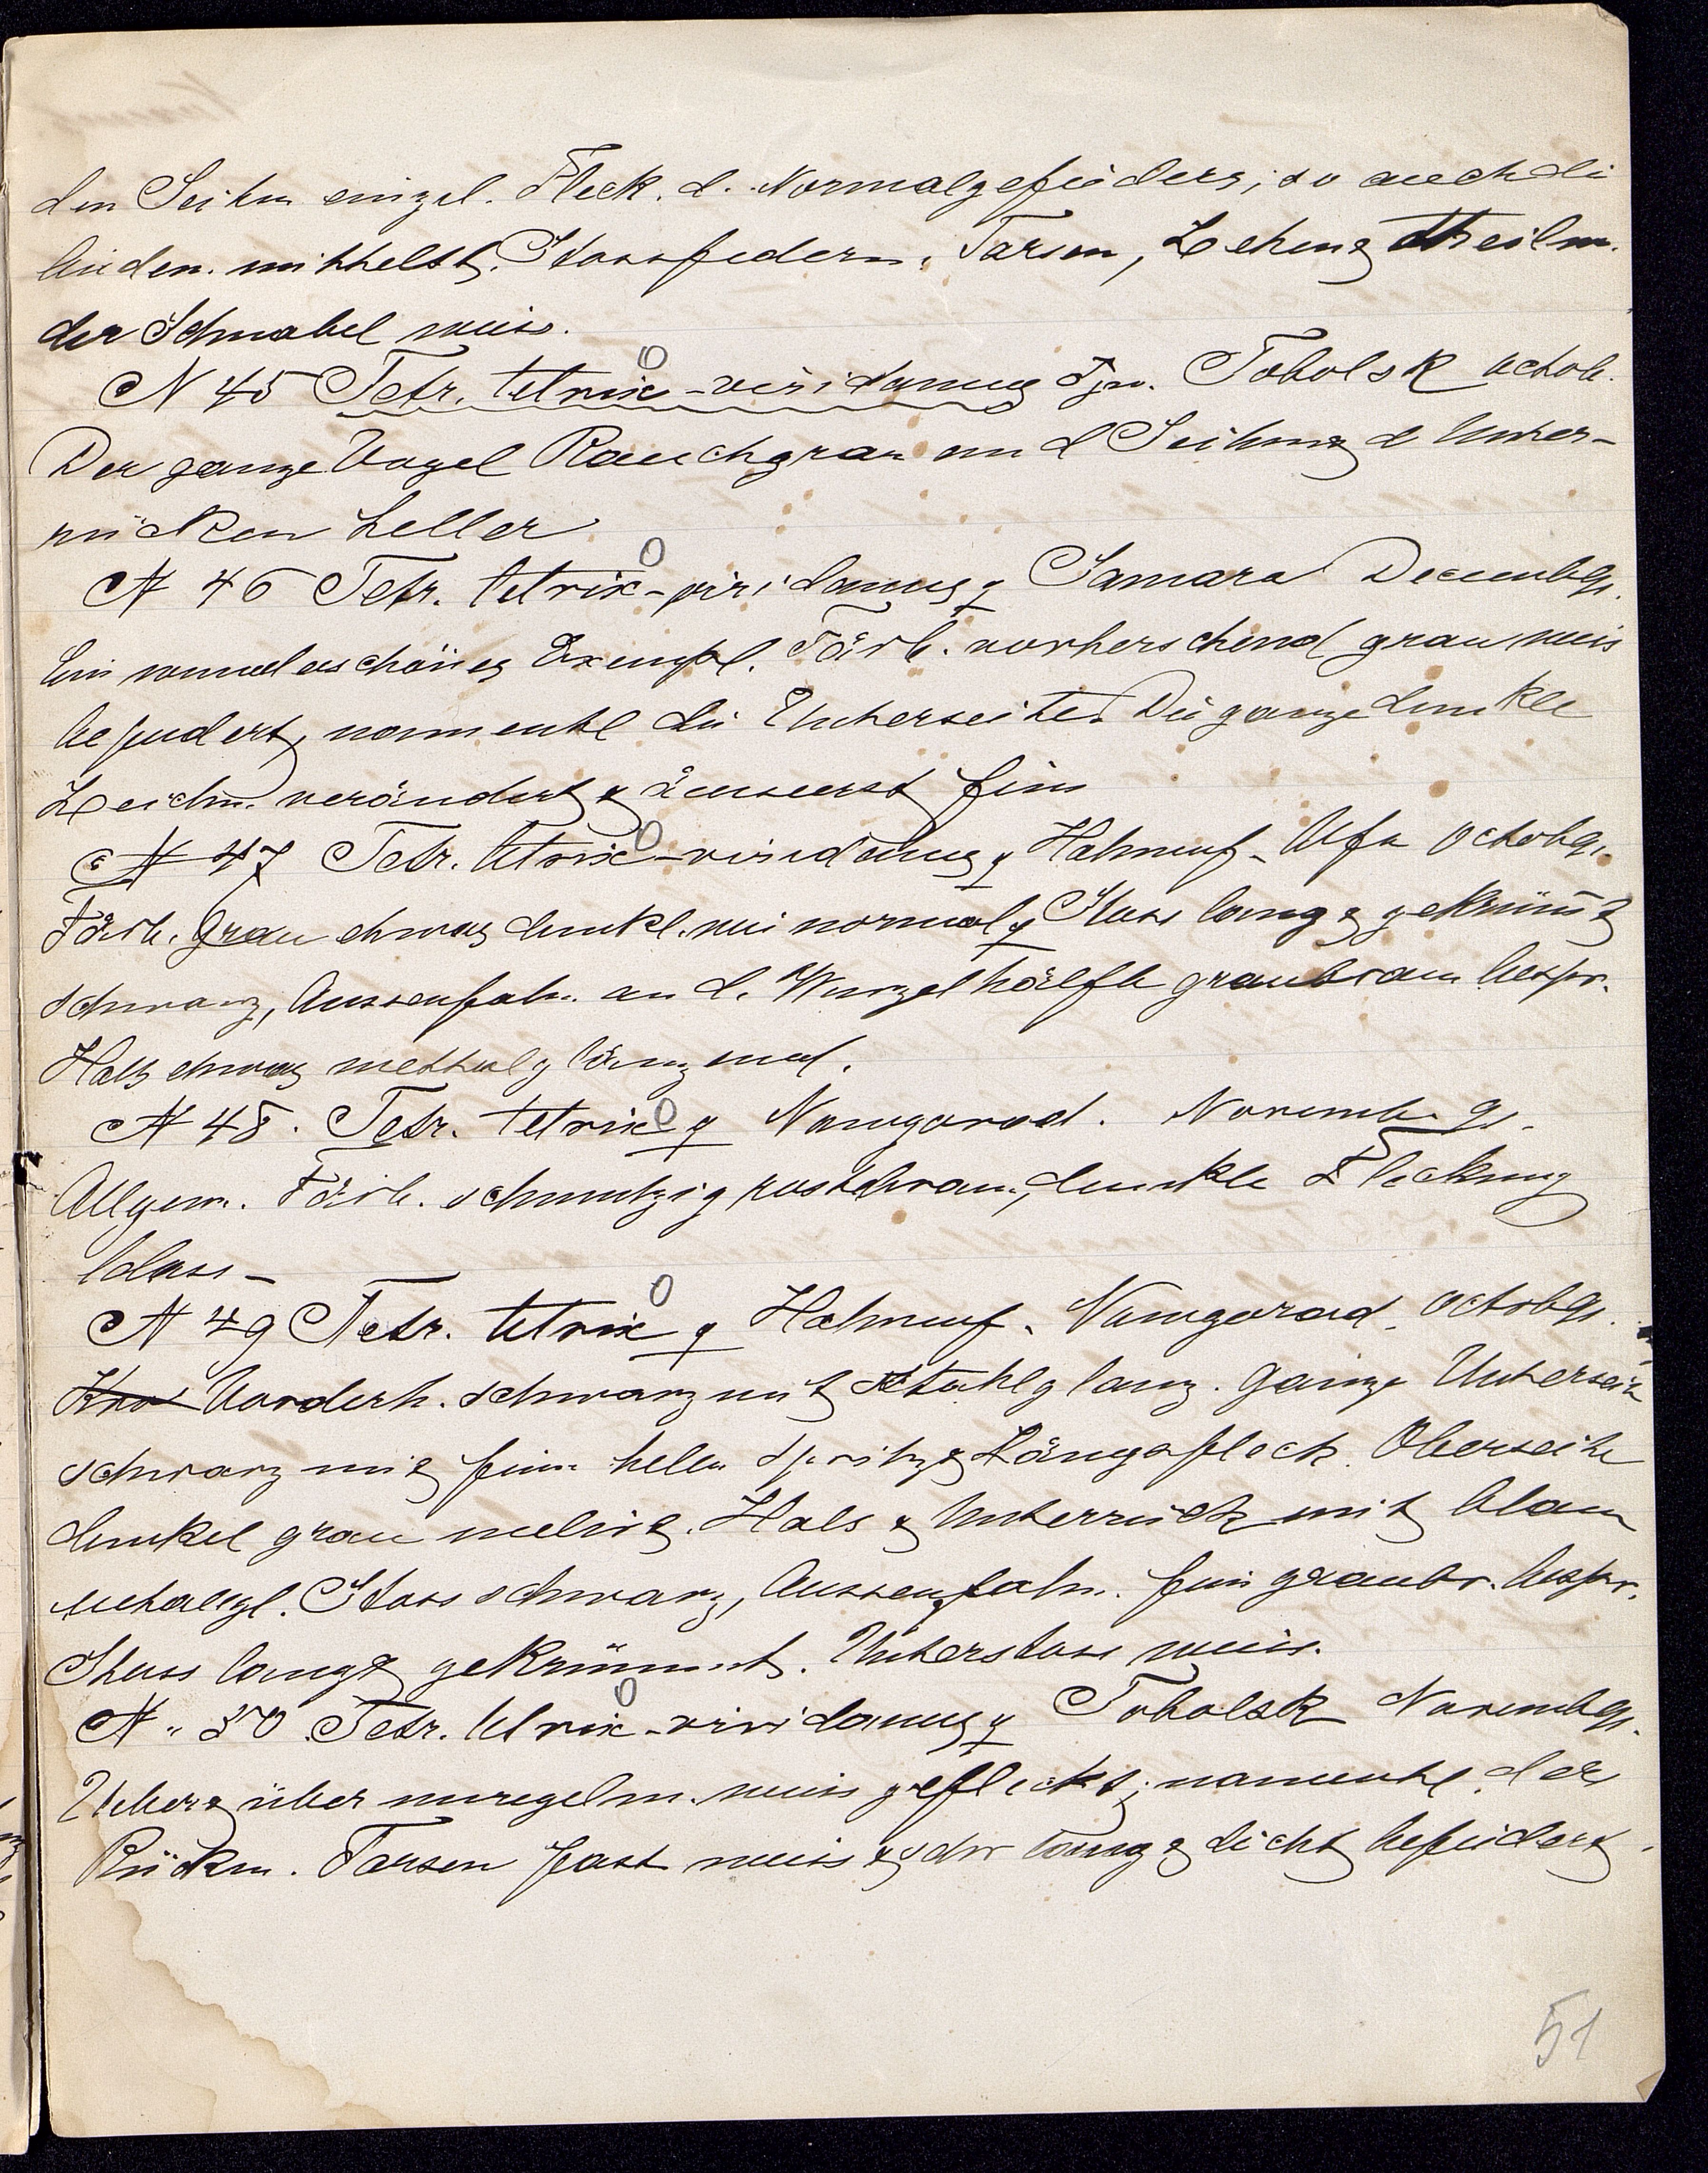 den Seiten einzel. Fleck. d. Normalgefieders; so auch die
beiden mittelst. Stossfedern. Tarsen, Zehen & theilw.
der Schnabel weiss.
N 45 Tetr. tetrix-viridanus ♂ jr. Tobolsk octob.
Der ganze Vogel Rauchgrau an d Seiten & d Unter-
rücken heller
N 46 Tetr. tetrix-viridanus ♀ Samara Decembr.
Ein wunderschönes Exempl. Färb. vorherschend grau weis
befiedert, namentl die Unterseite. Die ganze dunkle
Zeichn. verändert & äusserst fein
N 47 Tetr. tetrix-viridanus ♀ Hahnenf. Ufa octobr.
Färb. Grau etwas dunkl. wie normal ♀ Stoss lang & gekrümt
schwarz, Aussenfahn. an d. Wurzelhälfte graubraun bespr.
Hals etwas mettalglänzend.
N 48. Tetr. tetrix ♀ Nowgorod. Novembr.
Allgem. Färb. schmutzig rostbraun, dunkle Fleckung
blass –
N 49 Tetr. tetrix ♀ Hahnenf. Nowgorod. octobr.
Vorderh. schwarz mit Stahlglanz. Ganze Unterseite
schwarz mit fein. hellen Spritz & Längsfleck. Oberseite
dunkel grau melirt. Hals & Unterrück mit blau
metallgl. Stoss schwarz, Aussenfahn. fein graubr. bespr.
Stoss lang & gekrümmt. Unterstoss weiss.
N. 50 Tetr. tetrix-viridanus ♀ Tobolsk Novembr.
Ueber & über unregelm. weiss gefleckt; namentl. der
Rücken. Tarsen fast weiss & sehr lang & dicht befiedert.
51